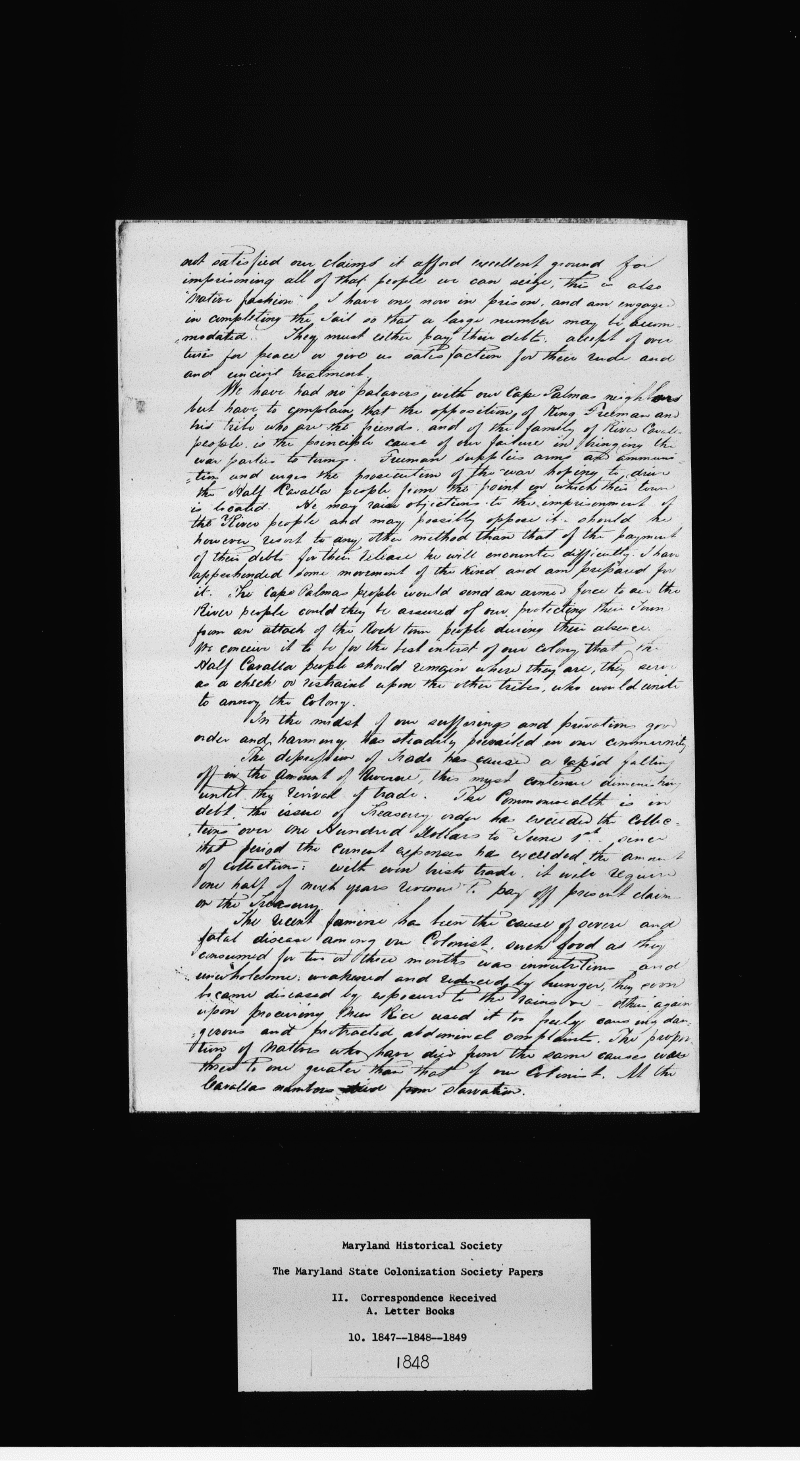 not satisfied our claims it afford excellent ground for
imprisoning all of that people we can seize, this is also
"Native fashion". I have one now in prison, and am engaged
in completing the Jail so that a large number may be accom-
modated. They must either pay their debts. accept of over
tures for peace or give us satisfaction for their rude and
and uncivil treatment.
We have had no palavers with our Cape Palmas neighbors
but have to complain that the opposition of King Freeman and
his tribe who are the friends. and of the family of River Cavalla
people. is the principle cause of our failure in bringing the
war parties to terms. Freeman supplies arms and ammuni-
-tion and urges the prosecution of the war hoping to drive
the Half Cavalla people from the point on which their town
is located. He may raise objections to the imprisonment of
the River people and may possibly oppose it. should he
however resort to any other method than that of the payment
of their debts for their release he will encounter difficulty. I have
apprehended some movement of the kind and am prepared for
it. The Cape Palmas people would send an armed force to aid the
River people could they be assured of our protecting their Town
from an attack of the Rock town people during their absence.
We conceive it to be for the best interest of our colony that the
Half Cavalla people should remain where they are, they serve
as a check or restraint upon the other tribes, who would unite
to annoy the Colony.
In the midst of our sufferings and privations good
order and harmony has steadily prevailed in our community
The depression of trade has caused a rapid falling
off in the amount of Revenue, this must continue diminishing
until the revival of trade. The Commonwealth is in
debt, the issue of Treasury order has exceeded the collec-
-tions over one Hundred Dollars to June 1st. since
that period the current expenses has exceeded the amount
of collections; with even brisk trade. it will require
one half of next years revenue to pay off present claims
on the Treasury.
The recent famine has been the cause of severe and
fatal disease among our Colonist, such food as they
consumed for two or three months was innutritious and
unwholesome. weakened and reduced by hunger, they soon
became diseased by exposure to the rains - others again
upon procuring new Rice used it to freely causing dan-
-gerous and protracted abdominal complaints. The propor
tion of natives who have died from the same causes was
three to one greater than that of our Colonist. At the
Cavallas numbers died from starvation.
Maryland Historical Society
The Maryland State Colonization Society Papers
II. Correspondence Received
A. Letter Books
10. 1847--1848--1849
1848